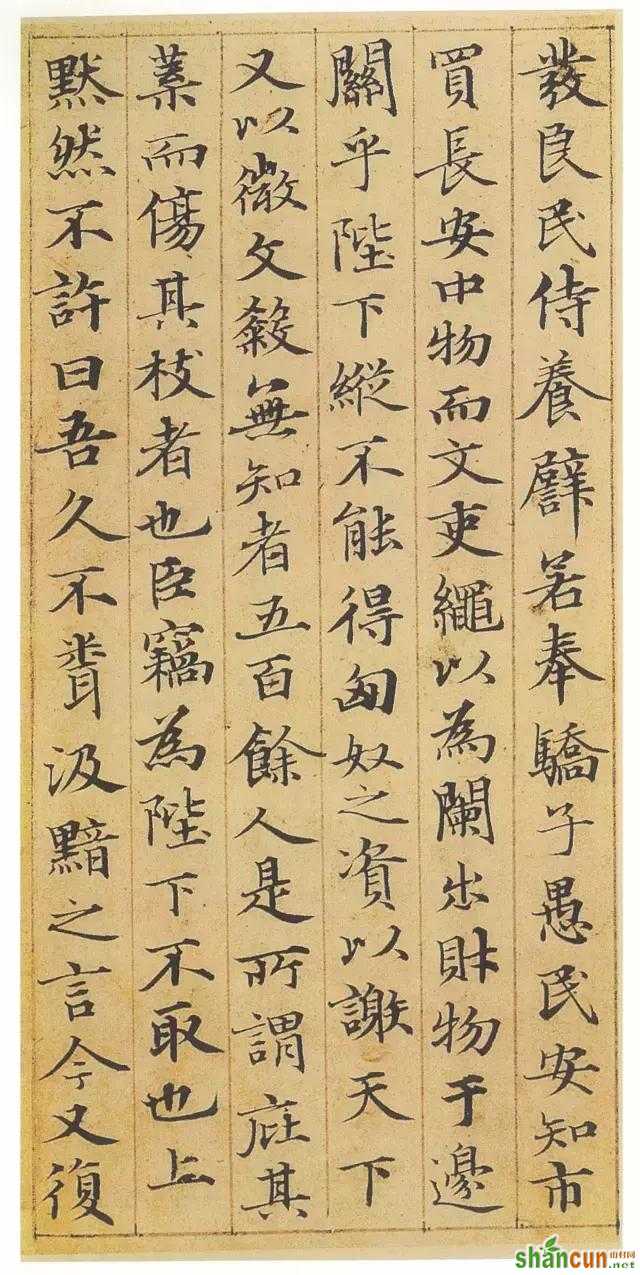 發良民侍養譬若奉驕子愚民安知市
買長安中物而文吏繩以為闌出財物于邊
關乎陛下縱不能得匈奴之資以謝天下
又以微文殺無知者五百餘人是所謂庇其
葉而傷其枝者也臣竊為陛下不取也上
默然不許曰吾久不聞汲黯之言今又復
shancun 山村网
.net